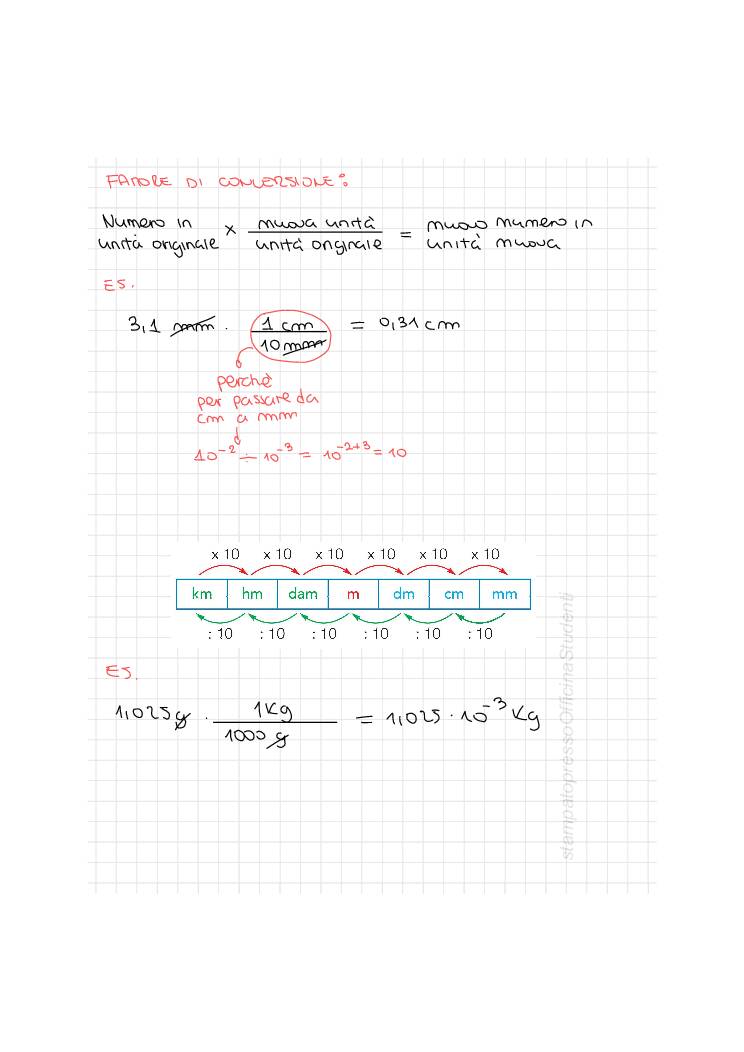 FATTORE DI CONVERSIONE:
Numero in unità originale × nuova unità / unità originale = nuovo numero in unità nuova
ES.
3,1 mm · 1 cm / 10 mm = 0,31 cm
perchè
per passare da
cm a mm
10⁻² ÷ 10⁻³ = 10⁻²⁺³ = 10
x 10 x 10 x 10 x 10 x 10 x 10
km hm dam m dm cm mm
: 10 : 10 : 10 : 10 : 10 : 10
ES.
1,025 g · 1 Kg / 1000 g = 1,025 · 10⁻³ Kg
stampatopressoOfficinaStudenti